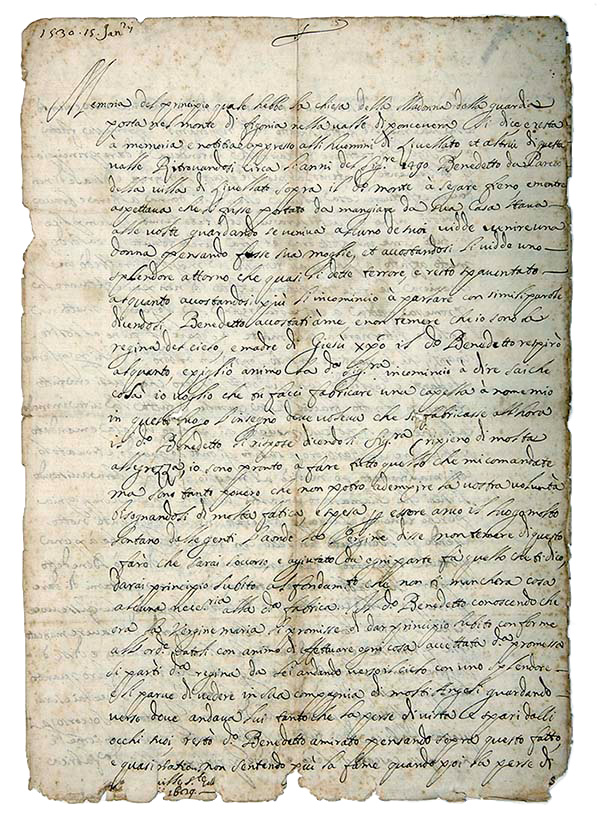 1530. 15. Jan.ry
Memoria del principio quale hebbe la chiesa della Madonna della guardia
posta nel monte di figonia nella valle di poncevera Si dice e resta
a memoria e notitia appresso alli huomini di Livellato et altri di questa
valle Ritrovandosi circa li anni del Sig.re 1490 Benedetto da Pareto
della villa di Livellato sopra il d.o monte à segare fieno e mentre
aspettava che li fusse portato da mangiare da sua Casa stava
alle volte guardando se veniva alcuno de suoi vidde venire una
donna pensando fosse sua moglie, et accostandosi li vidde uno
splendore attorno che quasi li dette terrore e restò spaventato
alquanto accostandosi più li incominciò à parlare con simili parole
dicendoli Benedetto accostati à me e non temere che io sono la
regina del cielo, e madre di Giesù xpo il d.o Benedetto respirò
alquanto e pigliò animo la d.a Sig.ra incominciò à dire sai che
cosa io voglio che tu facci fabricare una capella à nome mio
in questo luogo l'insegnò dove voleva che si fabricasse allhora
il d.o Benedetto li rispose dicendoli Sig.ra ripieno di molta
allegrezza io sono pronto à fare tutto quello che mi comandate
ma sono tanto povero che non posso adempire la vostra voluntà
bisognandosi di molta fatica e spesa p essere anco il luogo molto
lontano dalle genti laonde la Vergine disse non temere di questo
farò che sarai socorso e agiutato da ogni parte fà quello che ti dico
darai principio subito alli fondam.ti che non ti mancherà cosa
alcuna necess.ria alla d.a fabrica Il d.o Benedetto conoscendo che
era la Vergine maria li promisse di dar principio subito conforme
all'ord. datoli con animo di efetuare ogni cosa accettata d.a promessa
si partì d.a regina da lei andando verso il cielo con uno splendore
li parve di vedere in sua compagnia di molti Angeli guardando
verso dove andava lui tanto che la perse di vista e sparì dalli
occhi suoi restò d.o Benedetto amirato pensando sopra questo fatto
e quasi non sentendo più la fame quando poi la perse di
1609